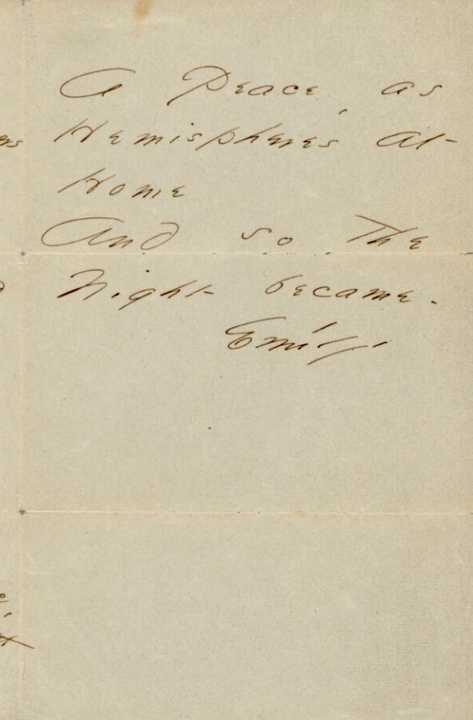 A Peace, as
Hemispheres at
Home
And so the
Night became.
Emily.